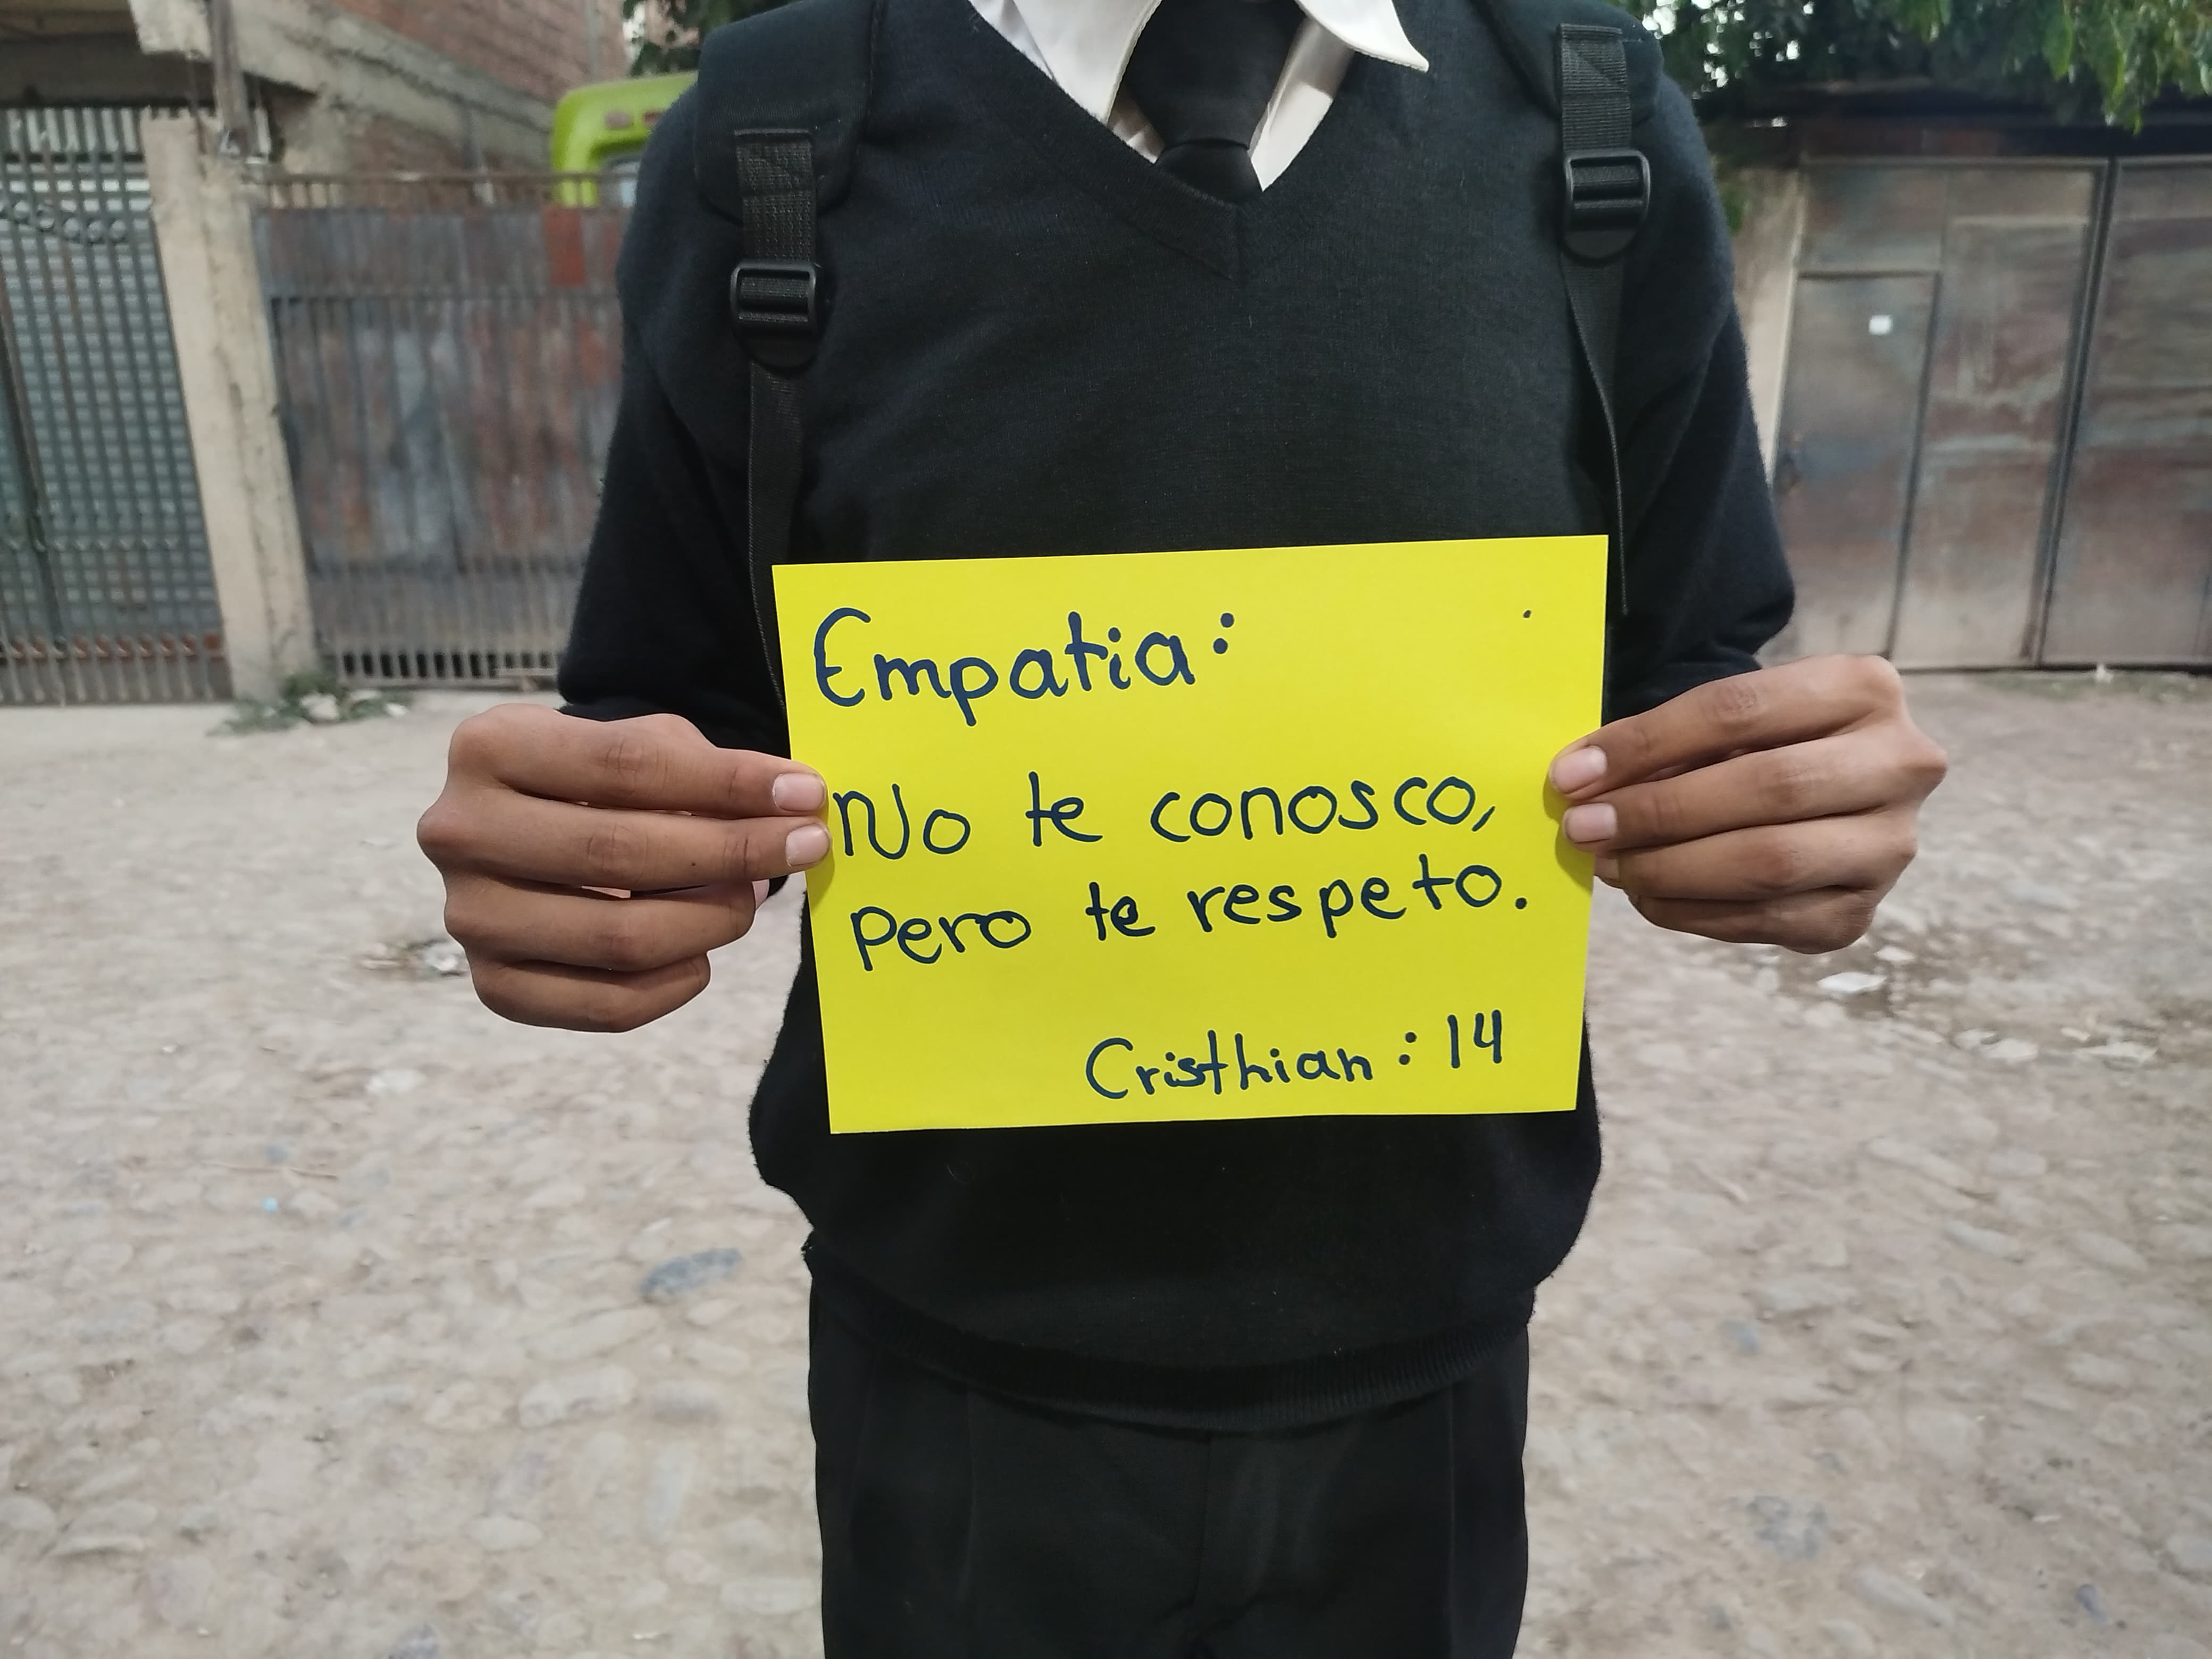 Empatia:
No te conosco,
pero te respeto.
Cristhian : 14